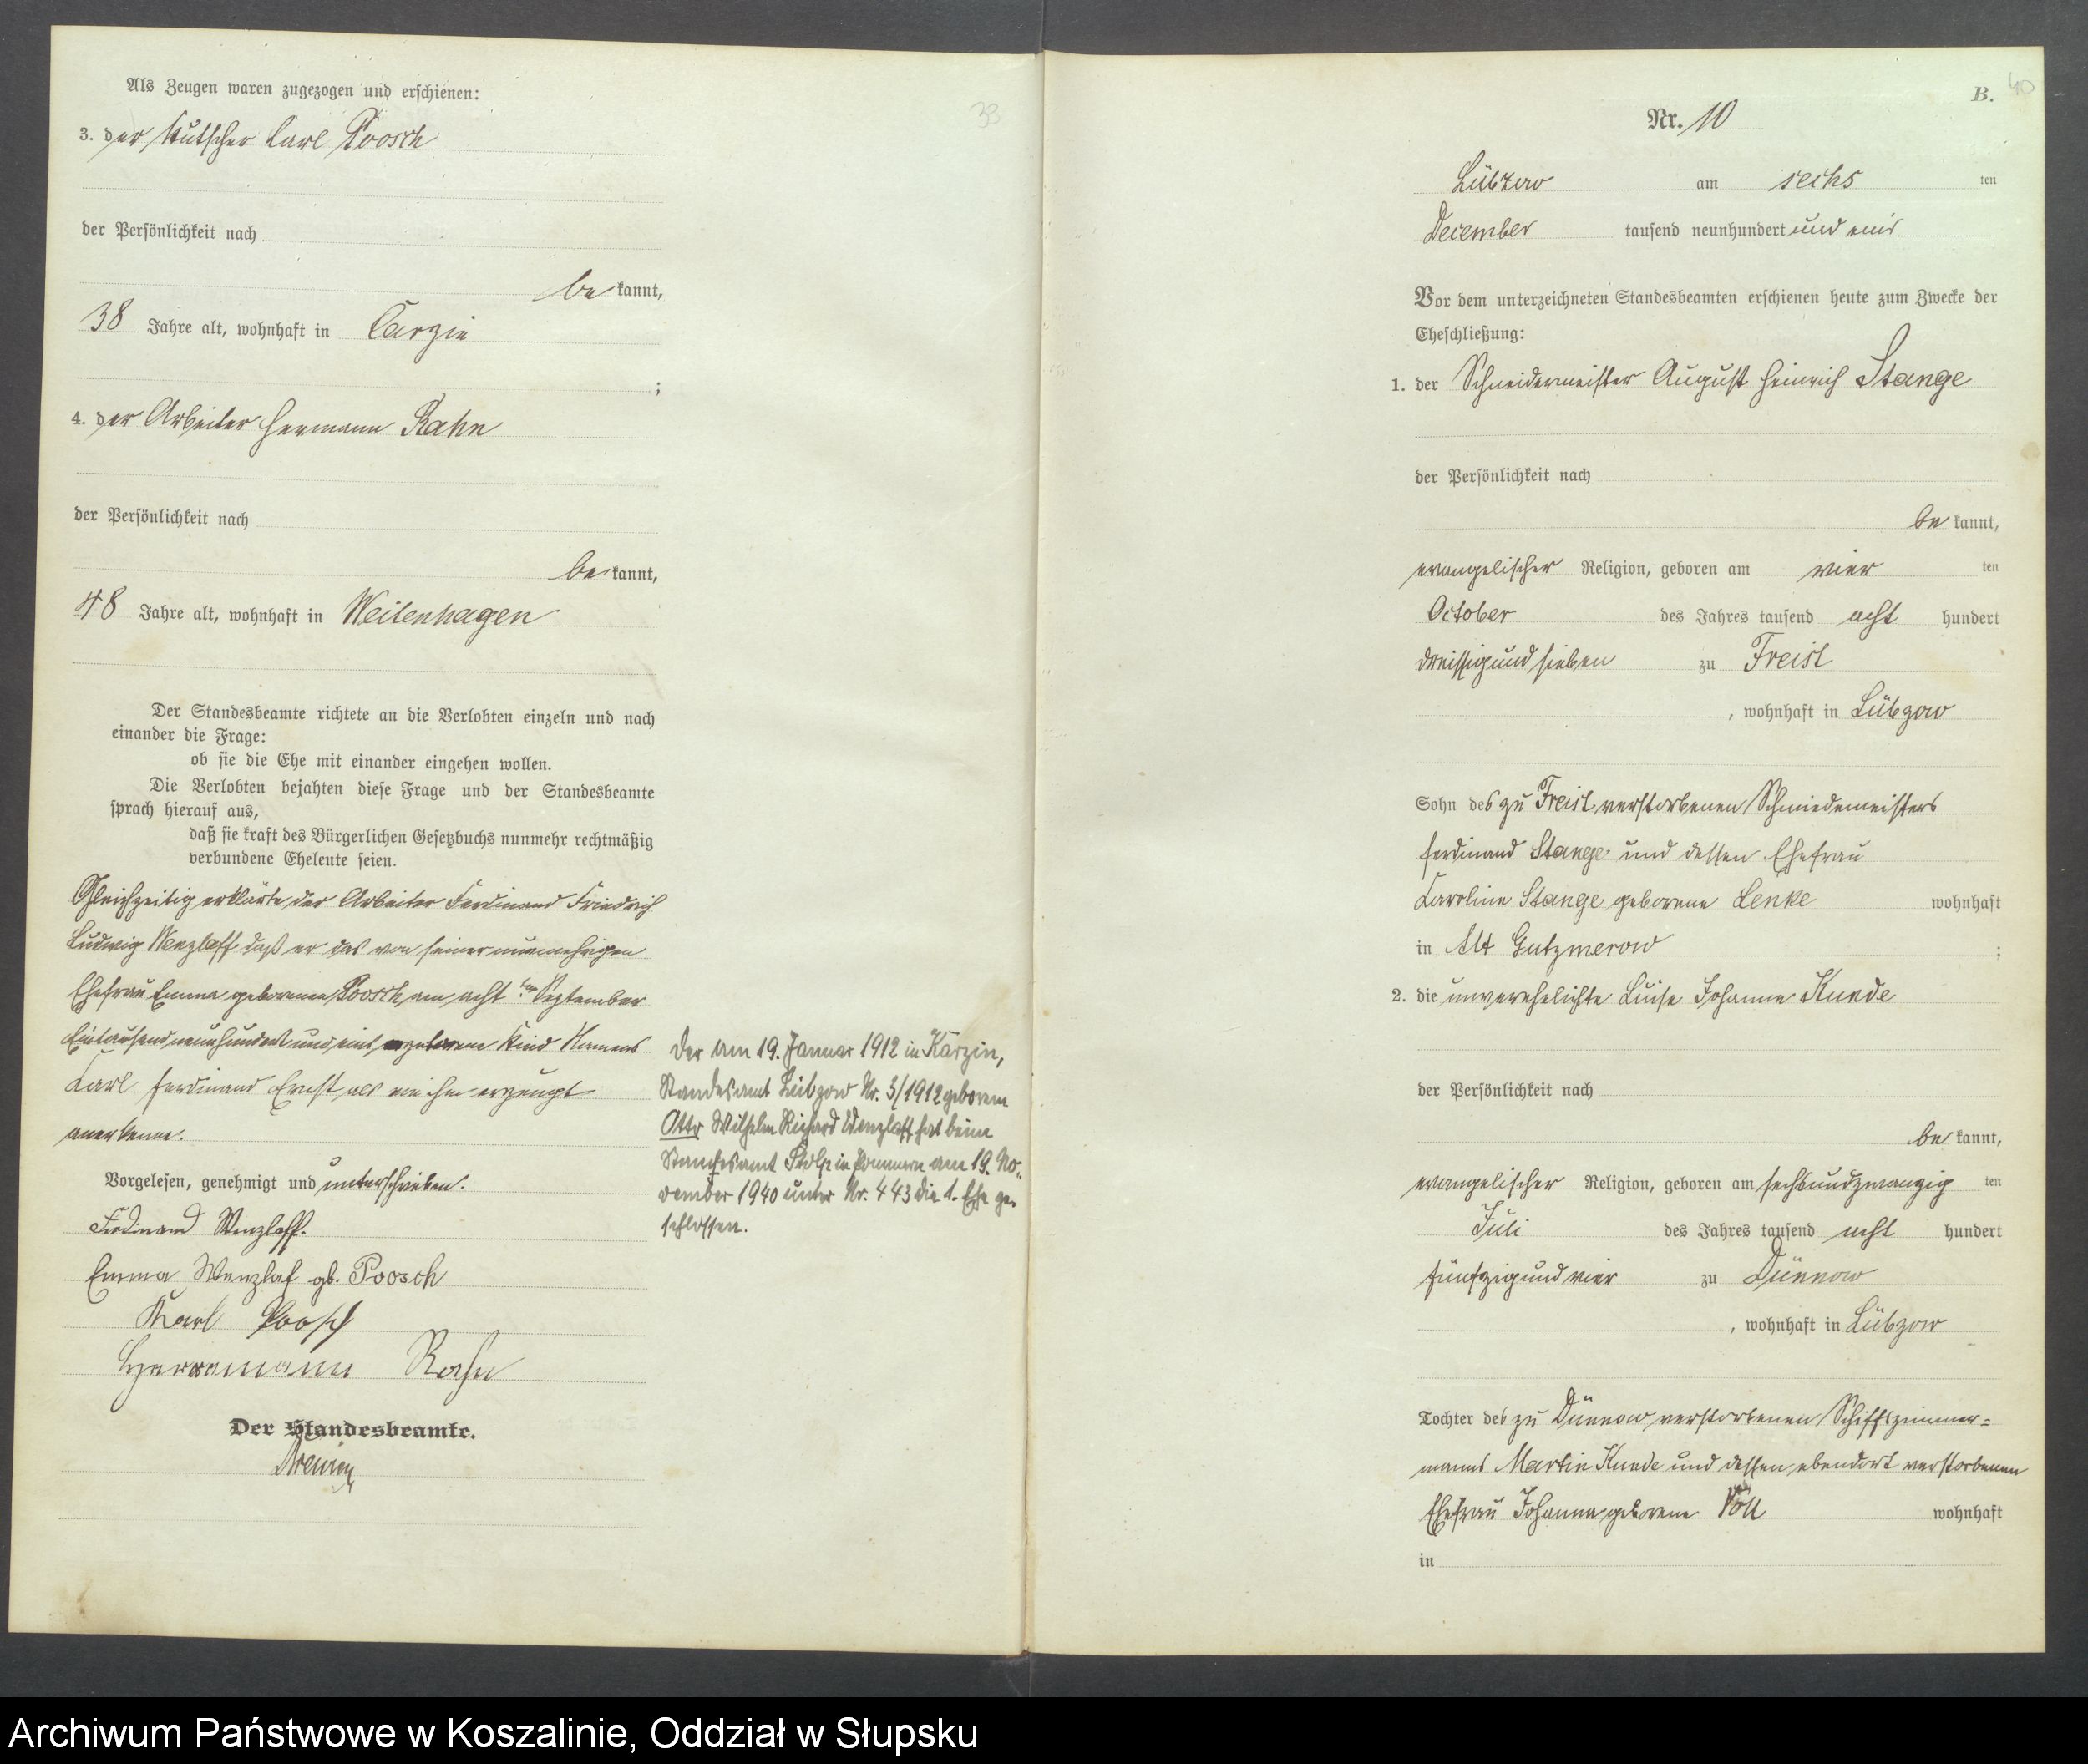 Als Zeugen waren zugezogen und erschienen:
3. der Kutscher Carl Poosch
der Persönlichkeit nach
be kannt,
38 Jahre alt, wohnhaft in Carzin
;
4. der Arbeiter Hermann Rahn
der Persönlichkeit nach
be kannt,
48 Jahre alt, wohnhaft in Weitenhagen
Der Standesbeamte richtete an die Verlobten einzeln und nach
einander die Frage:
ob sie die Ehe mit einander eingehen wollen.
Die Verlobten bejahten diese Frage und der Standesbeamte
sprach hierauf aus,
daß sie kraft des Bürgerlichen Gesetzbuchs nunmehr rechtmäßig
verbundene Eheleute seien.
Gleichzeitig erklärte der Arbeiter Ferdinand Friedrich
Ludwig Wenzlaff daß er das von seiner nunmehrigen
Ehefrau Emma geborenen Poosch, am acht ten September
Eintausend neunhundert und eins geborene Kind Namens
Carl Ferdinand Ernst als von ihm erzeugt
anerkenne.
Vorgelesen, genehmigt und unterschrieben.
Ferdinand Wenzlaff.
Emma Wenzlaf gb. Poosch
Karl Poosch
Herrmann Rahn
Der Standesbeamte.
33
Der am 19. Januar 1912 in Karzin,
Standesamt Lübzow Nr. 3/1912 geborene
Otto Wilhelm Richard Wenzlaff hat beim
Standesamt Stolp in Pommern am 19. No-
vember 1940 unter Nr. 443 die 1. Ehe ge-
schlossen.
B. 40
Nr. 10
Lübzow am sechs ten
December tausend neunhundert und eins
Vor dem unterzeichneten Standesbeamten erschienen heute zum Zwecke der
Eheschließung:
1. der Schneidermeister August Heinrich Stange
der Persönlichkeit nach
be kannt,
evangelischer Religion, geboren am vier ten
October des Jahres tausend acht hundert
dreissig und sieben zu Freist
, wohnhaft in Lübzow
Sohn des zu Freist verstorbenen Schmiedemeisters
Ferdinand Stange und dessen Ehefrau
Caroline Stange geborene Lenke wohnhaft
in Alt Gutzmerow ;
2. die unverehelichte Luise Johanne Kunde
der Persönlichkeit nach
be kannt,
evangelischer Religion, geboren am sechsundzwanzig ten
Juli des Jahres tausend acht hundert
fünfzig und vier zu Dünnow
, wohnhaft in Lübzow
Tochter des zu Dünnow verstorbenen Schiffszimmer-
manns Martin Kunde und dessen ebendort verstorbenen
Ehefrau Johanna geborene wohnhaft
in
Archiwum Państwowe w Koszalinie, Oddział w Słupsku